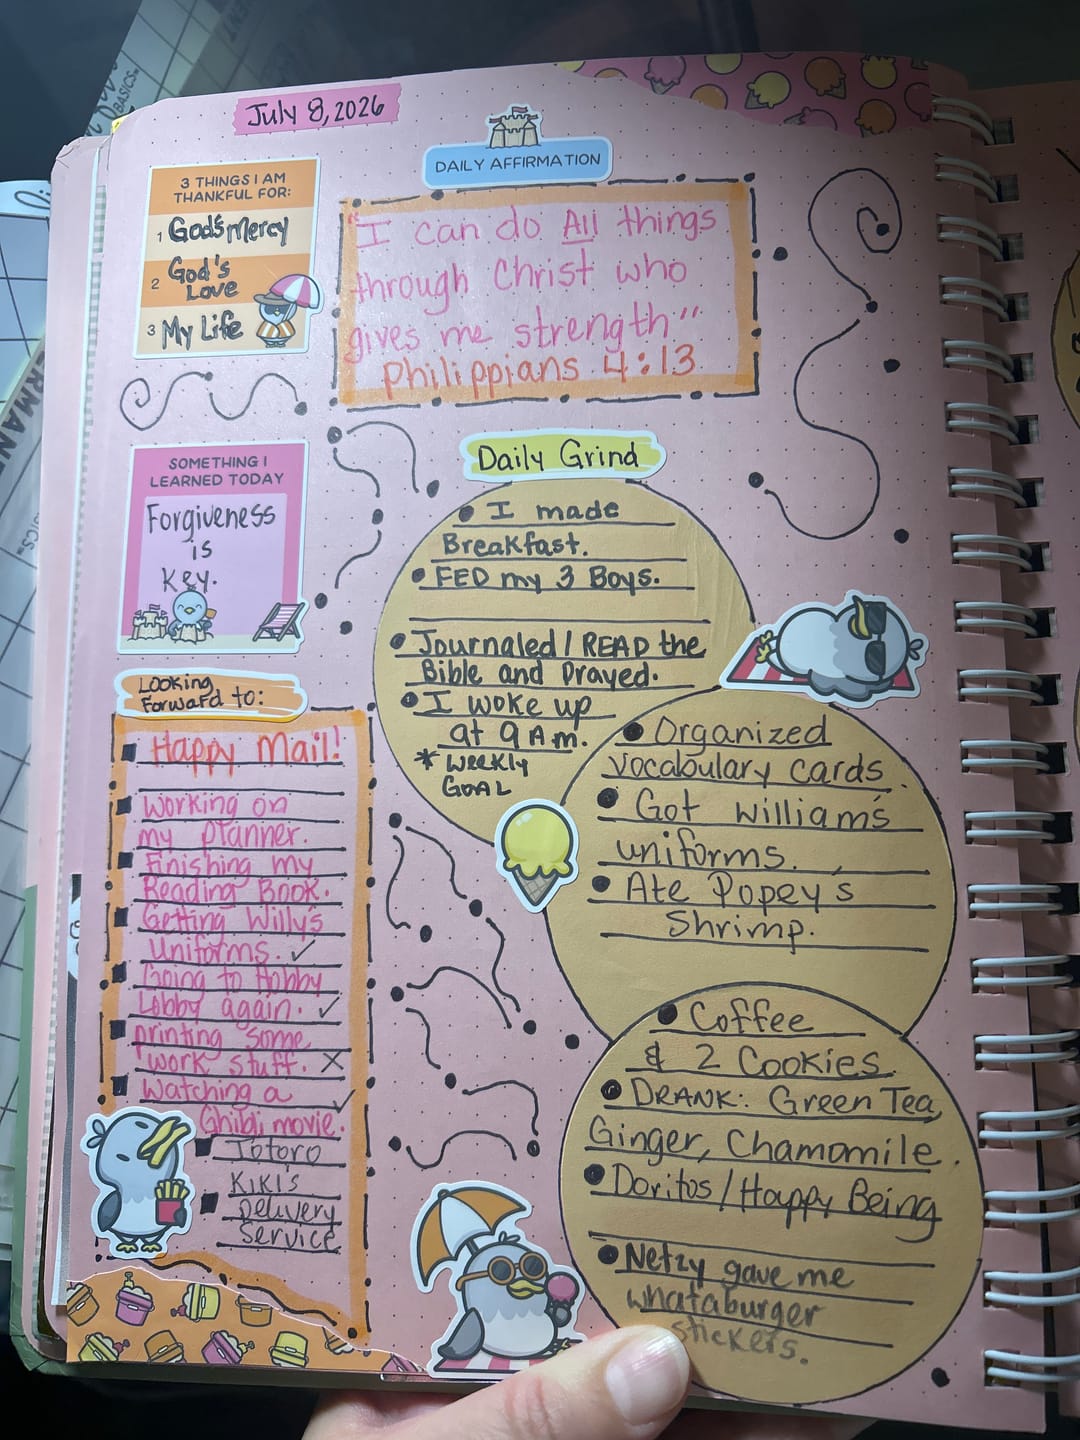 July 8, 2026
DAILY AFFIRMATION
3 THINGS I AM
THANKFUL FOR:
1 God's Mercy
2 God's
Love
3 My Life
"I can do All things
through Christ who
gives me strength"
Philippians 4:13
SOMETHING I
LEARNED TODAY
Forgiveness
is
Key.
Daily Grind
• I made
Breakfast.
• FED my 3 Boys.
• Journaled / READ the
Bible and Prayed.
• I woke up
at 9 Am.
* Weekly
Goal
• Organized
vocabulary cards.
• Got William's
uniforms.
• Ate Popey's
Shrimp.
• Coffee
& 2 Cookies.
• DRANK: Green Tea,
Ginger, Chamomile.
• Doritos / Happy Being
• Netzy gave me
whataburger
stickers.
Looking
Forward to:
Happy Mail!
Working on
my planner.
Finishing my
Reading Book.
Getting Willy's
Uniforms. ✓
Going to Hobby
Lobby again. ✓
printing some
work stuff. X
Watching a ✓
Ghibli movie.
Totoro
Kiki's
Delivery
Service
BASICS
BASICS